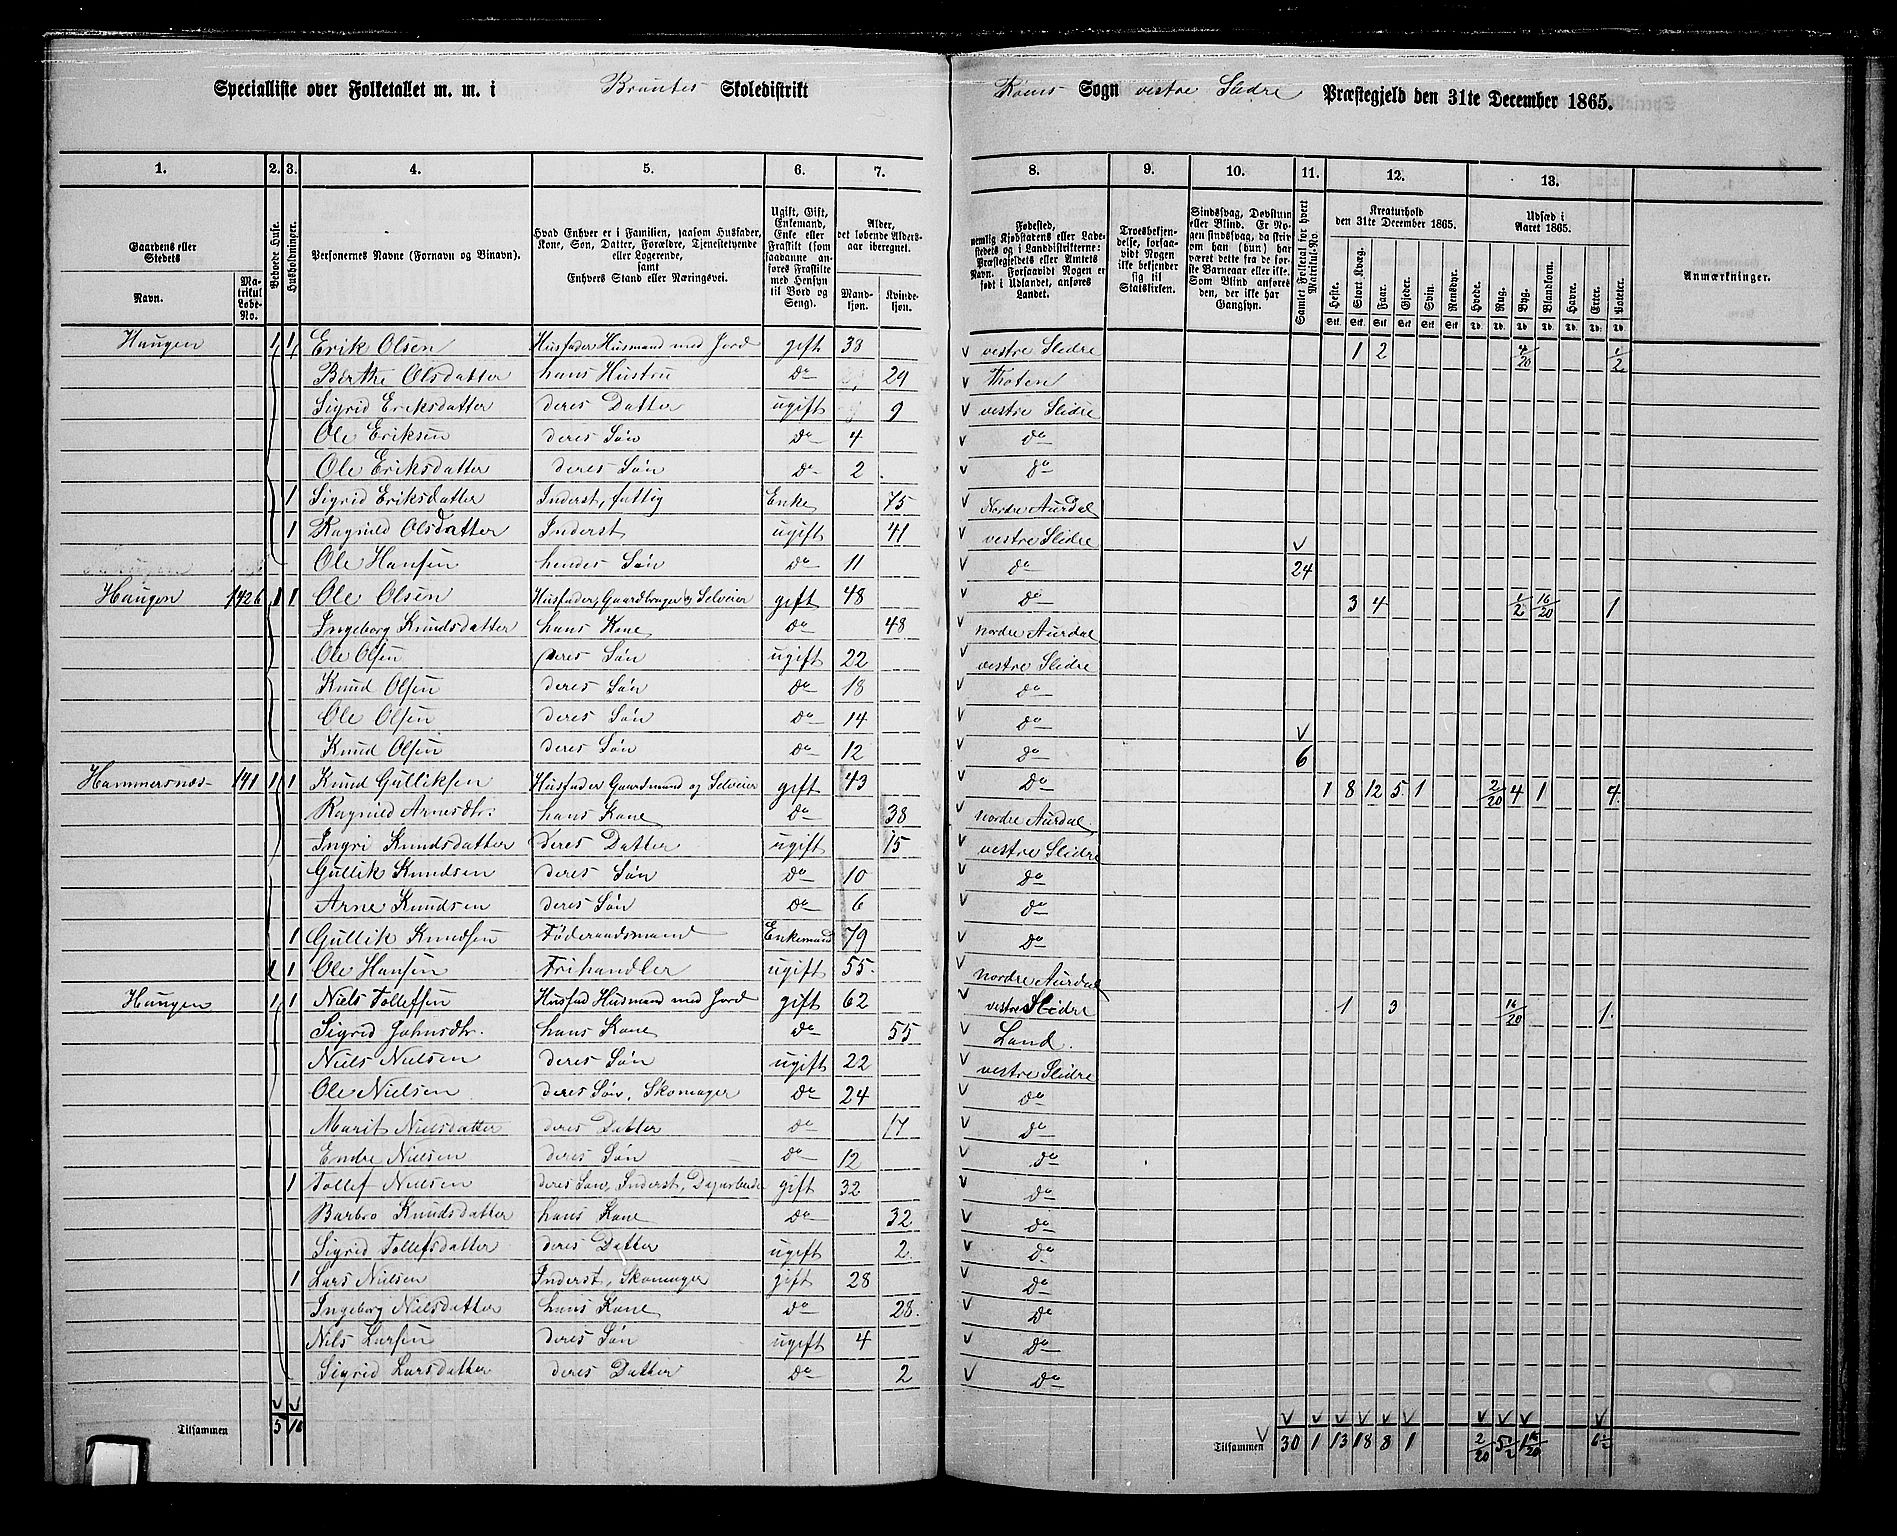 Specialliste over Folketallet m. m. i Brøntes Skoledistrikt Røens Sogn vestre Slidre Præstegjeld den 31te December 1865.
1. 2. 3. 4. 5. 6. 7. 8. 9. 10. 11. 12. 13.
Gaardens eller Stedets
Navn.
Matrikul Løbe-No.
Beboede Huse.
Husholdninger.
Personernes Navne (Fornavn og Binavn).
Hvad Enhver er i Familien, saasom Husfader, Kone, Søn, Datter, Forældre, Tjenestetyende eller Logerende, samt Enhvers Stand eller Næringsvei.
Ugift, Gift, Enkemand, Enke eller Fraskilt (som saadanne anføres Fraskilte med Hensyn til Bord og Seng).
Alder, det løbende Aldersaar iberegnet.
Mandkjøn. Kvindekjøn.
Fødested, nemlig Kjøbstadens eller Ladestedets og i Landdistrikterne: Præstegjeldets eller Amtets Navn. Forsaavidt Nogen er født i Udlandet, anføres Landet.
Troesbekjendelse, forsaavidt Nogen ikke bekjender sig til Statskirken.
Sindssvag, Døvstum eller Blind. Er Nogen sindssvag, da skriv om han (hun) har været dette fra de første Barneaar eller ikke. Som Blind anføres den, der ikke har Gangsyn.
Samlet Folketal for hvert Matrikul-No.
Kreaturhold den 31te December 1865.
Heste. Stort Kvæg. Faar. Gjeder. Svin. Rensdyr.
Udsæd i Aaret 1865.
Hvede. Rug. Byg. Blandkorn. Havre. Erter. Poteter.
Anmærkninger.
Haugen 1 1 Erik Olsen Husfader Husmand med Jord gift 38 vestre Slidre 1 2 4/20 1/2
Berthe Olsdatter hans Hustru do 29 Thoten
Sigrid Eriksdatter deres Datter ugift 9 vestre Slidre
Ole Eriksen deres Søn do 4 do
Ole Eriksdatter deres Søn do 2 do
1 Sigrid Eriksdatter Inderst, fattig Enke 75 Nordre Aurdal
1 Ragnild Olsdatter Inderst ugift 41 vestre Slidre
Ole Hansen hendes Søn do 11 do 24
Haugen 142b 1 1 Ole Olsen Husfader, Gaardbruger og Selveier gift 48 do 3 4 1/2 16/20 1
Ingeborg Knudsdatter hans Kone do 48 nordre Aurdal
Ole Olsen deres Søn ugift 22 vestre Slidre
Knud Olsen deres Søn do 18 do
Ole Olsen deres Søn do 14 do
Knud Olsen deres Søn do 12 do 6
Hammersnæs 141 1 1 Knud Gulliksen Husfader Gaardmand og Selveier gift 43 do 1 8 12 5 1 2/20 4 1 4
Ragnild Arnesdtr. hans Kone do 38 nordre Aurdal
Ingri Knudsdatter deres Datter ugift 15 vestre Slidre
Gullik Knudsen deres Søn do 10 do
Arne Knudsen deres Søn do 6 do
1 Gullik Knudsen Føderaadsmand Enkemand 79 do
1 Ole Hansen Frihandler ugift 55 nordre Aurdal
Haugen 1 1 Niels Tollefsen Husfad Husmand med Jord gift 62 vestre Slidre 1 3 16/20 1
Sigrid Johnsdtr. hans Kone do 55 Land
Niels Nielsen deres Søn ugift 22 vestre Slidre
Ole Nielsen deres Søn, Skomager do 24 do
Marit Nielsdatter deres Datter do 17 do
Endre Nielsen deres Søn do 12 do
1 Tollef Nielsen deres Søn, Inderst, gift 32 do
Barbro Knudsdatter hans Kone do 32 do
Sigrid Tollefsdatter deres Datter ugift 2 do
1 Lars Nielsen Inderst, Skomager gift 28 do
Ingeborg Nielsdatter hans Kone do 28 do
Nils Larsen deres Søn ugift 4 do
Sigrid Larsdatter deres Datter do 2 do
Tilsammen 5 10 Tilsammen 30 1 13 18 8 1 2/20 5 1/2 1 16/20 6 1/2